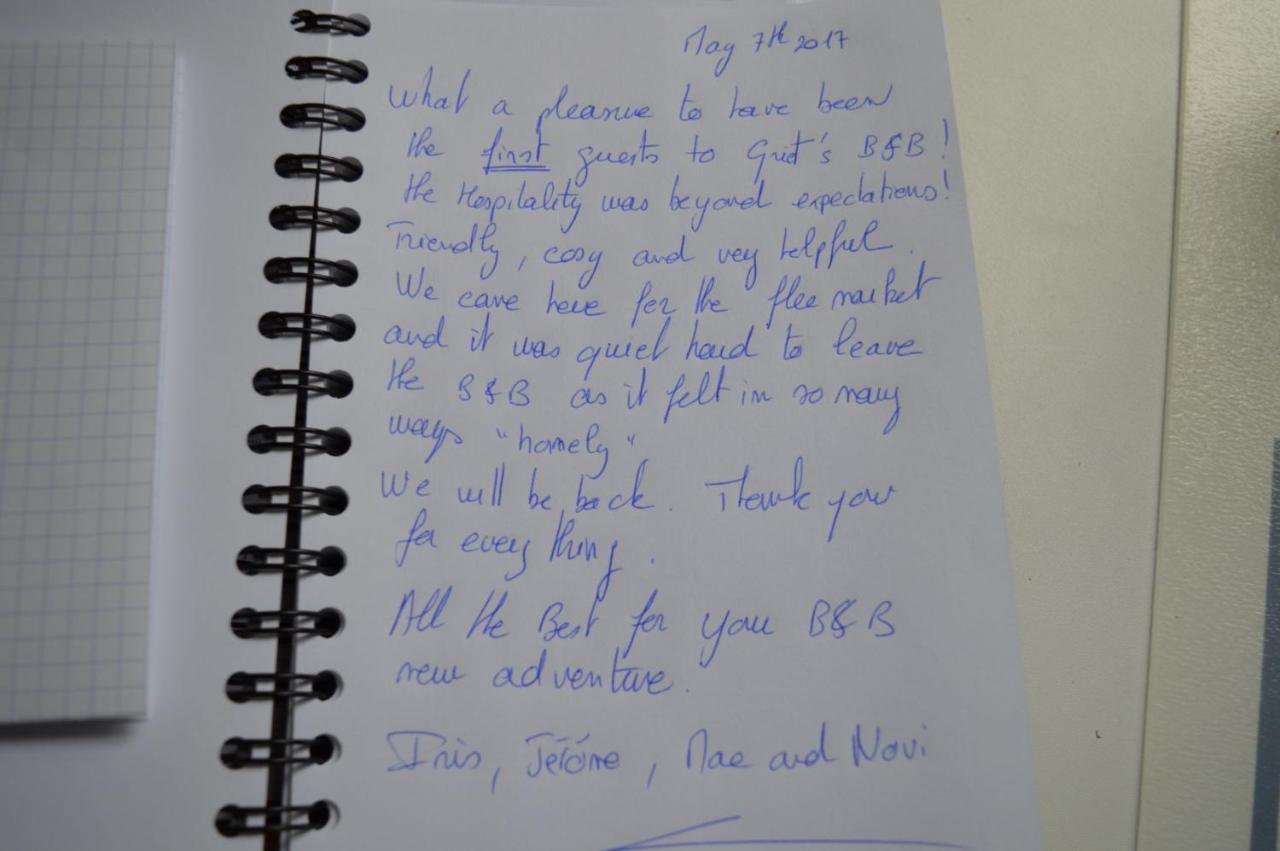 May 7th 2017
What a pleasure to have been
the first guests to Grit's B&B!
the Hospitality was beyond expectations!
Friendly, cosy and very helpful.
We came here for the flee market
and it was quiet hard to leave
the B&B as it felt in so many
ways "homely"
We will be back. Thank you
for every thing.
All the Best for your B&B
new adventure.
Iris, Jérôme, Mae and Novi